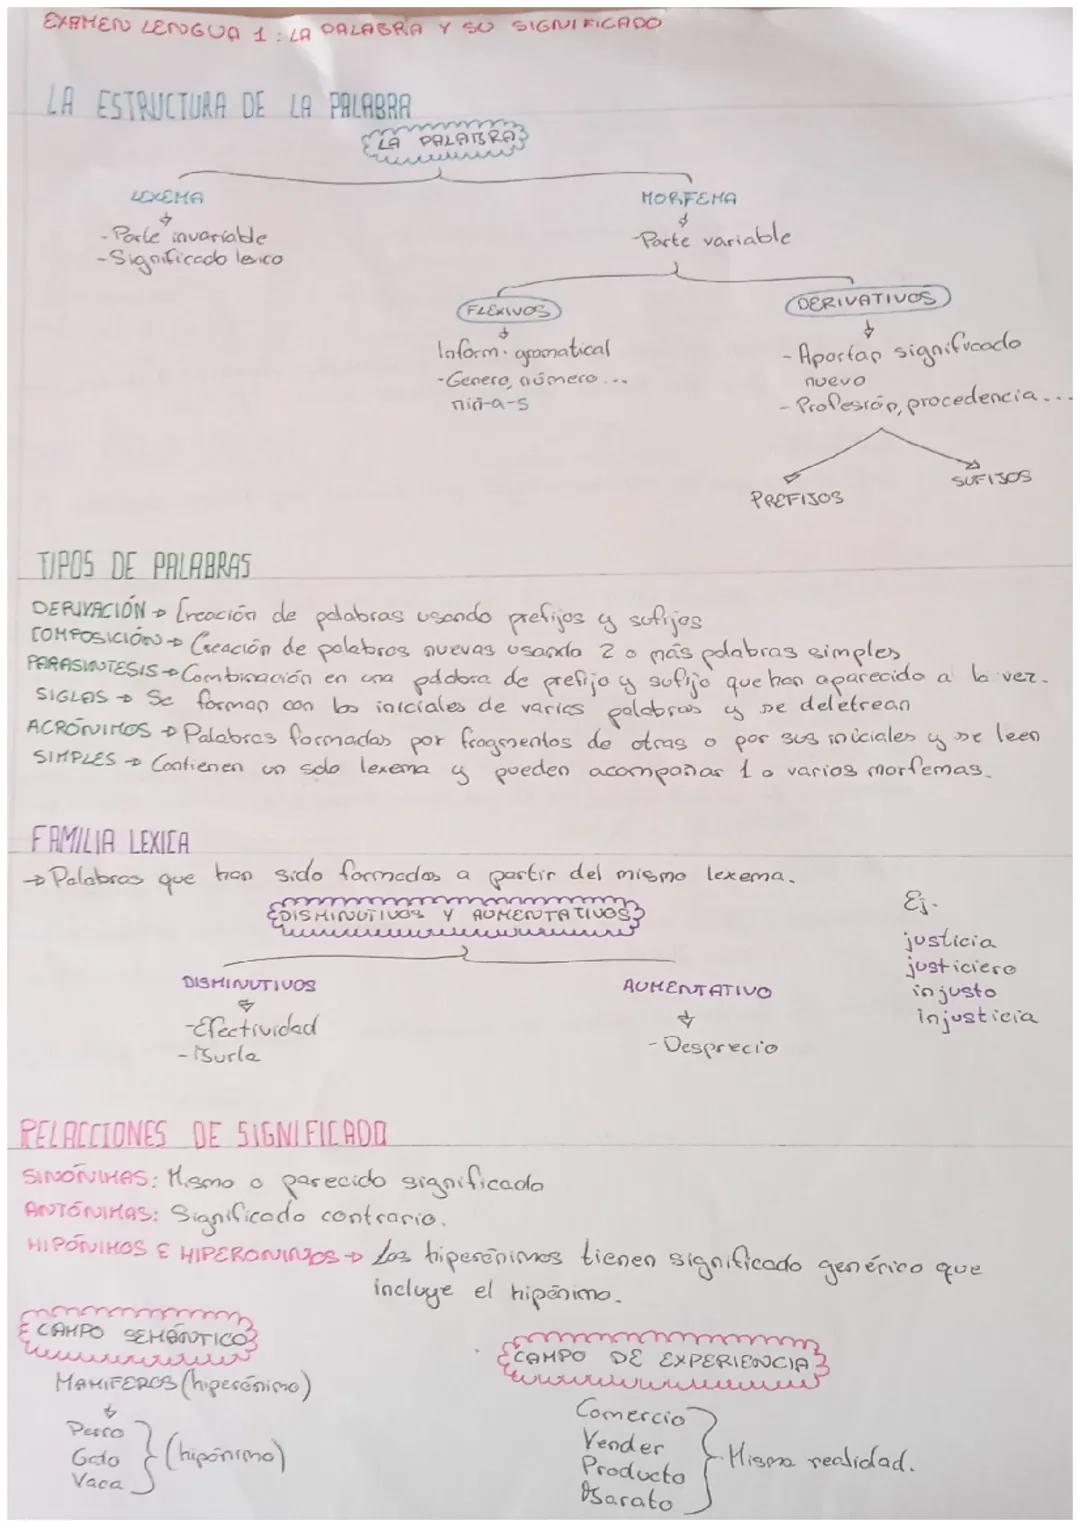 EXAMEN LENGUA 1: LA PALABRA Y SU SIGNIFICADO
LA ESTRUCTURA DE LA PALABRA
LA PALABRA
LEXEMA
- Parte invariable
- Significado lexico
MORFEMA
- Parte variable
FLEXIVOS
Inform. gramatical
- Genero, número ...
niñ-a-s
DERIVATIVOS
- Aportan significado
nuevo
- Profesión, procedencia ...
PREFIJOS
SUFIJOS
TIPOS DE PALABRAS
DERIVACIÓN → Creación de palabras usando prefijos y sufijos
COMPOSICIÓN → Creación de palabras nuevas usando 2 o más palabras simples
PARASINTESIS → Combinación en una palabra de prefijo y sufijo que han aparecido a la vez.
SIGLAS → Se forman con las iniciales de varias palabras y se deletrean
ACRÓNIMOS → Palabras formadas por fragmentos de otras o por sus iniciales y se leen
SIMPLES → Contienen un solo lexema y pueden acompañar 1 o varios morfemas.
FAMILIA LEXICA
→ Palabras que han sido formadas a partir del mismo lexema.
Ej.
justicia
justiciero
injusto
injusticia
DISMINUTIVOS Y AUMENTATIVOS
DISMINUTIVOS
- Efectividad
- Burla
AUMENTATIVO
- Desprecio
RELACCIONES DE SIGNIFICADO
SINÓNIMAS: Mismo o parecido significado
ANTÓNIMAS: Significado contrario.
HIPÓNIMOS E HIPERONIMOS → Los hiperónimos tienen significado genérico que
incluye el hipónimo.
CAMPO SEMÁNTICO
MAMIFEROS (hiperónimo)
Perro
Gato
Vaca
(hipónimo)
CAMPO DE EXPERIENCIA
Comercio
Vender
Producto
Barato
Misma realidad.